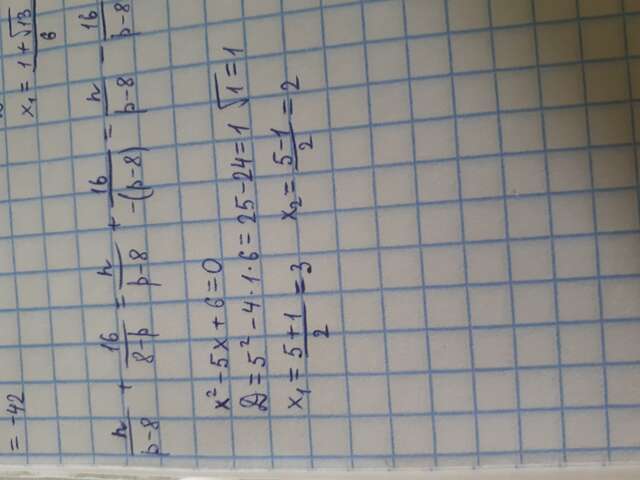 = -42
x₁ = (1+√13)/6
h/(p-8) + 16/(8-p) = h/(p-8) + 16/(-(p-8)) = h/(p-8) - 16/(p-8)
x² - 5x + 6 = 0
D = 5² - 4·1·6 = 25 - 24 = 1 √1 = 1
x₁ = (5+1)/2 = 3 x₂ = (5-1)/2 = 2